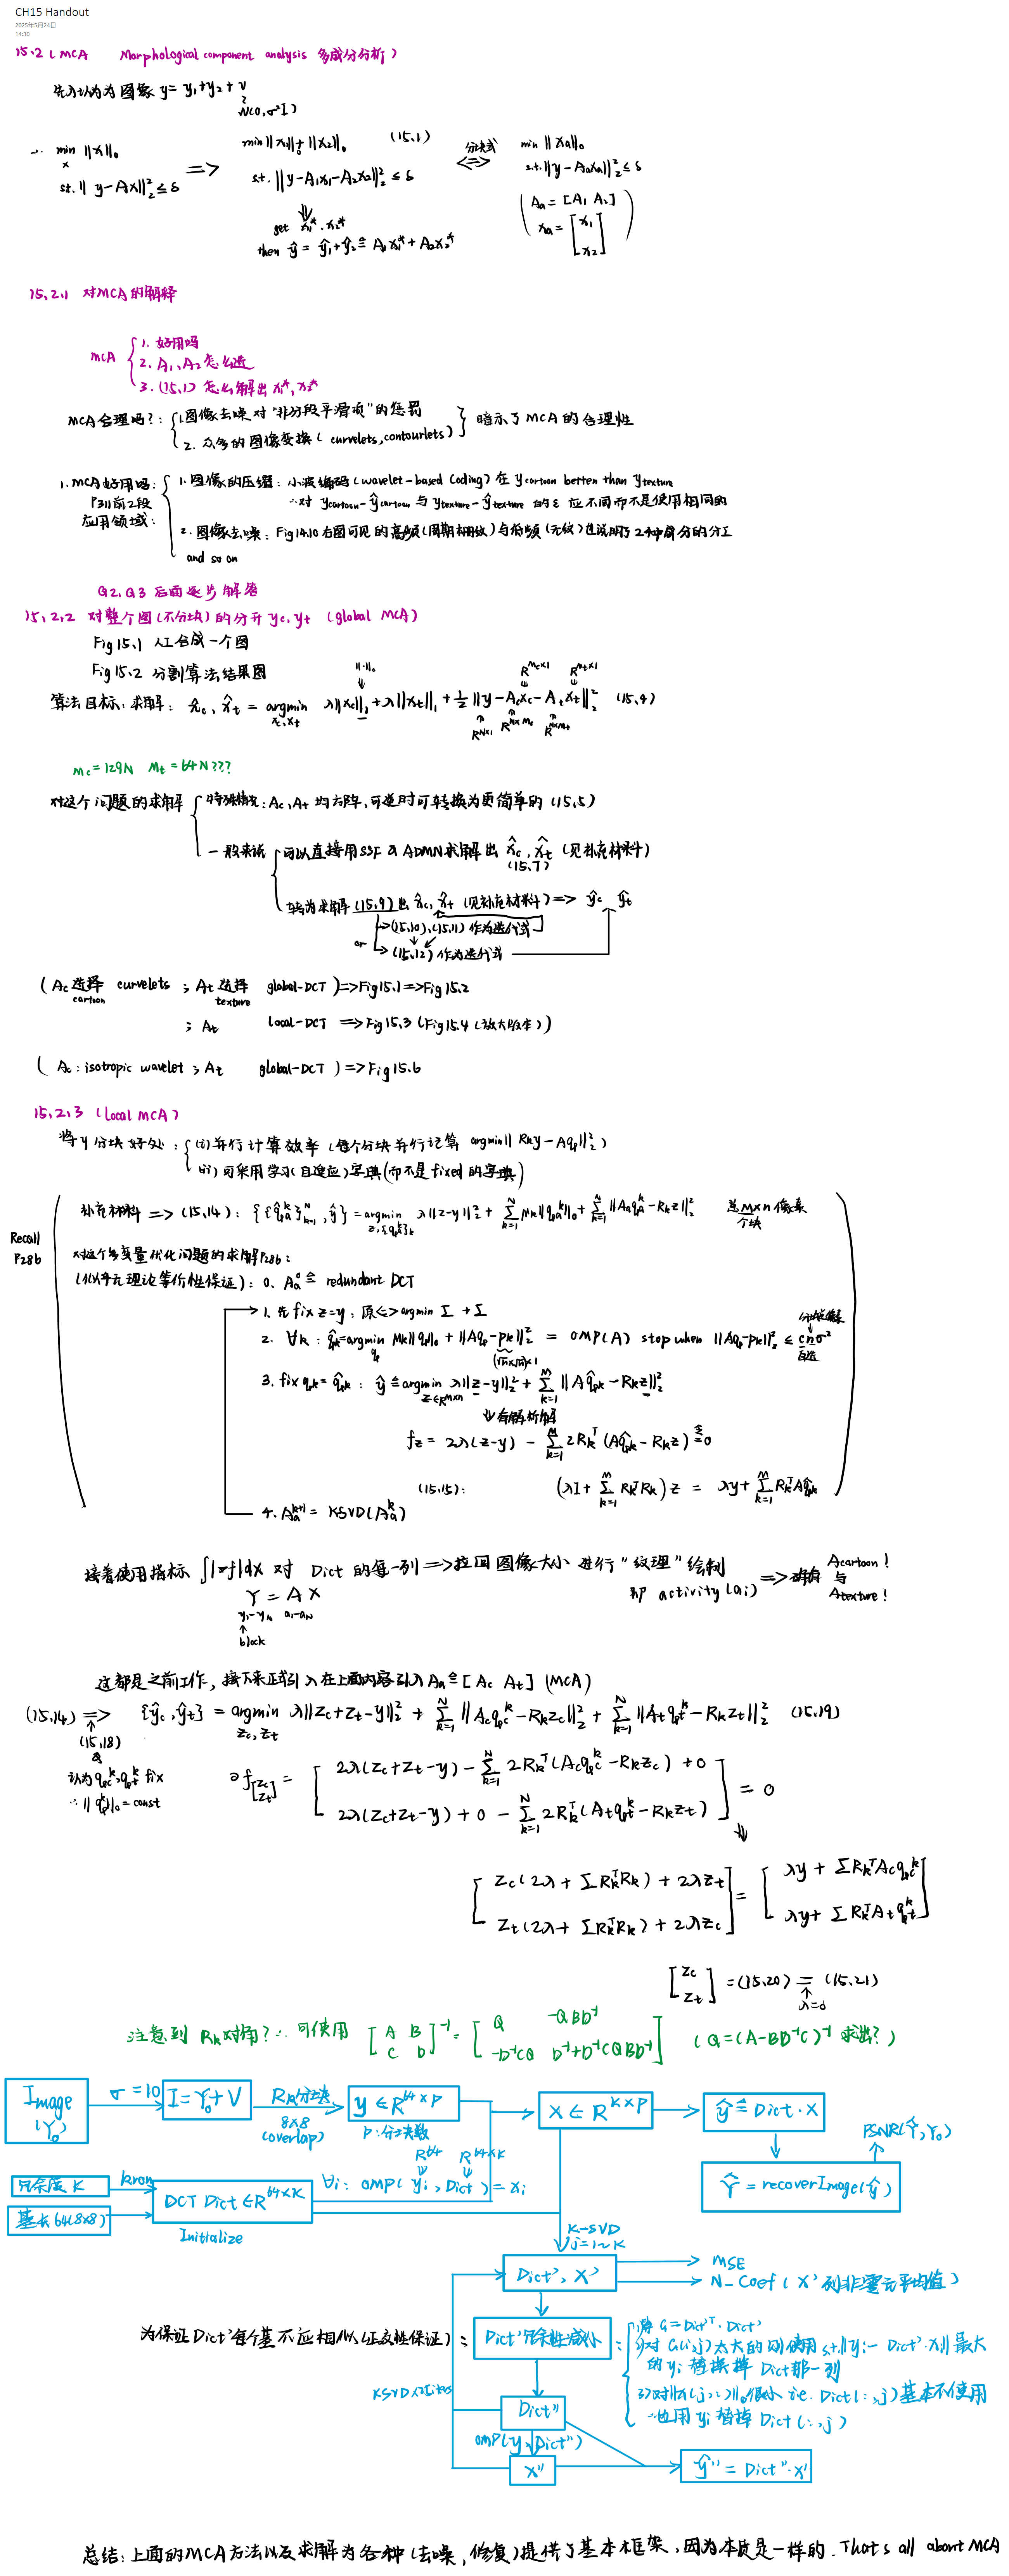 CH15 Handout
2025年5月24日
14:30
15.2 (MCA Morphological component analysis 多成分分析)
先入认为为图像 y = y₁+y₂+v
N(0,σ²I)
∴ min ‖x‖₀ => min‖x₁‖₀+‖x₂‖₀ (15.1) 分块式 <=> min ‖xa‖₀
x
s.t.‖y-Ax‖₂² ≤ δ s.t. ‖y-A₁x₁-A₂x₂‖₂² ≤ δ s.t.‖y-Aaxa‖₂² ≤ δ
(Aa = [A₁ A₂]
xa = [x₁
x₂])
get x₁*, x₂*
then ŷ = ŷ₁+ŷ₂ ≜ A₁x₁*+A₂x₂*
15.2.1 对MCA的解释
MCA { 1. 好用吗
2. A₁, A₂ 怎么选
3. (15.1) 怎么解出 x₁*, x₂*
MCA合理吗?: { 1.图像去噪对"非分段平滑项"的惩罚
2. 众多的图像变换 ( curvelets, contourlets) } 暗示了MCA的合理性
1. MCA好用吗: { 1. 图像的压缩: 小波编码 (wavelet-based coding) 在 ycartoon better than ytexture
P311前2段 ∴对 ycartoon-ŷcartoon 与 ytexture-ŷtexture 的ε 应不同而不是使用相同的
应用领域:
2. 图像去噪: Fig14.10 右图可见的高频(周期栅纹)与低频(无纹)也说明了2种成分的分工
and so on
Q2, Q3 后面逐步解答
15.2.2 对整个图(不分块)的分开 yc, yt (global MCA)
Fig15.1 人工合成一个图
Fig15.2 分割算法结果图
‖·‖₀ R^{Mc×1} R^{Mt×1}
算法目标: 求解: x̂c, x̂t = argmin λ‖xc‖₁+λ‖xt‖₁+½‖y-Acxc-Atxt‖₂² (15.4)
xc,xt
R^{N×1} R^{N×Mc} R^{N×Mt}
Mc=129N Mt=64N???
对这个问题的求解 { 特殊情况: Ac, At 均方阵, 可逆时可转换为更简单的 (15.5)
一般来说 { 可以直接用SSF及ADMN求解出 x̂c, x̂t (见补充材料)
(15.7)
转为求解 (15.9) 出 x̂c, x̂t (见补充材料) => ŷc ŷt
→(15.10), (15.11) 作为迭代式
or →(15.12) 作为迭代式
(Ac 选择 curvelets ; At 选择 global-DCT)=>Fig15.1=>Fig15.2
cartoon texture
; At local-DCT => Fig15.3 (Fig15.4 (放大版本))
( Ac: isotropic wavelet ; At global-DCT ) => Fig15.6
15.2.3 (local MCA)
将y分块好处: { (i) 并行计算效率 (每个分块并行计算 argmin‖Rky-Aq‖₂²)
(ii) 可采用学习(自适应)字典(而不是fixed的字典)
Recall
P286
补充材料 => (15.14): {{q̂a^k}_{k=1}^N, ŷ} = argmin λ‖z-y‖₂² + Σ_{k=1}^N μk‖qa^k‖₀+Σ_{k=1}^N‖Aaqa^k-Rkz‖₂² 总M×n像素
z,{q^k}k 个块
对这个多变量优化问题的求解P286:
(似乎无理论等价性保证): 0. Aa⁰ ≜ redundant DCT
1. 先fix z=y, 原<=>argmin Σ + Σ
2. ∀k: q̂k=argmin μk‖q‖₀+‖Aq-pk‖₂² = OMP(A) stop when ‖Aq-pk‖₂² ≤ cnσ²
q (√n×√n)×1 自选
3. fix qk=q̂k: ŷ≜argmin λ‖z-y‖₂²+Σ_{k=1}^M‖Aq̂k-Rkz‖₂²
z∈R^{M×n}
⇓有解析解
fz = 2λ(z-y) - Σ_{k=1}^M 2Rkᵀ(Aq̂k-Rkz) ≜ 0
(15.15): (λI+Σ_{k=1}^M RkᵀRk)z = λy+Σ_{k=1}^M RkᵀAq̂k
4. Aa^{k+1} = KSVD(Aa^k)
接着使用指标 ∫|∇f|dx 对 Dict 的每一列 => 拉回图像大小进行"纹理"绘制 => Acartoon!
Y = A X 即 activity(ai) 与
y₁-yN a₁-aN Atexture!
↑
block
这都是之前工作, 接下来正式引入在上面内容引入 Aa≜[Ac At] (MCA)
(15.14) => {ŷc, ŷt} = argmin λ‖zc+zt-y‖₂² + Σ_{k=1}^N‖Acqc^k-Rkzc‖₂² + Σ_{k=1}^N‖Atqt^k-Rkzt‖₂² (15.19)
↑ zc,zt
(15.18)
认为qc^k,qt^k fix
∴‖q^k‖₀=const
∂f[zc zt] = [ 2λ(zc+zt-y) - Σ_{k=1}^N 2Rkᵀ(Acqc^k-Rkzc) + 0
2λ(zc+zt-y) + 0 - Σ_{k=1}^N 2Rkᵀ(Atqt^k-Rkzt) ] = 0
[ zc(2λ+ΣRkᵀRk)+2λzt
zt(2λ+ΣRkᵀRk)+2λzc ] = [ λy+ΣRkᵀAcqc^k
λy+ΣRkᵀAtqt^k ]
[zc
zt] = (15.20) = (15.21)
↑
λ=0
注意到 Rk对角?∴可使用 [A B
C D]⁻¹ = [Q -QBD⁻¹
-D⁻¹CQ D⁻¹+D⁻¹CQBD⁻¹] (Q=(A-BD⁻¹C)⁻¹ 求出?)
Image
(Y₀)
σ=10
I=Y₀+V
Rk分块
8×8
(overlap)
y∈R^{64×P}
P:分块数
X∈R^{K×P}
ŷ≜Dict·X
PSNR(Ŷ,Y₀)
Ŷ=recoverImage(ŷ)
冗余度K
kron
基本64(8×8)
DCT Dict∈R^{64×K}
Initialize
R^{64} R^{64×K}
∀i: OMP(yi, Dict)=xi
K-SVD
j=1~K
Dict', X'
MSE
N-Coef (X'列非零元平均值)
为保证Dict'每个基不应相似(正交性保证):
Dict'冗余性减小
1)算 G=Dict'ᵀ·Dict'
2)对 G(i,j)太大的列使用 s.t.‖yi-Dict'·Xi‖最大
的yi替换掉Dict那一列
3)对‖x(j,:)‖₀很小 i.e. Dict(:,j)基本不使用
∴也用yi替掉Dict(:,j)
Dict''
OMP(y,Dict'')
X''
ŷ''=Dict''·X'
总结: 上面的MCA方法以及求解为各种(去噪,修复)提供了基本框架, 因为本质是一样的. That's all about MCA